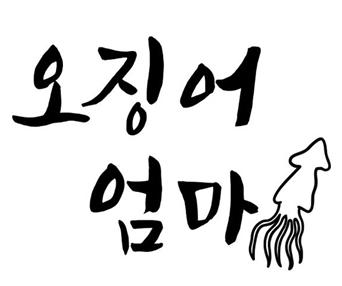 오징어
엄마